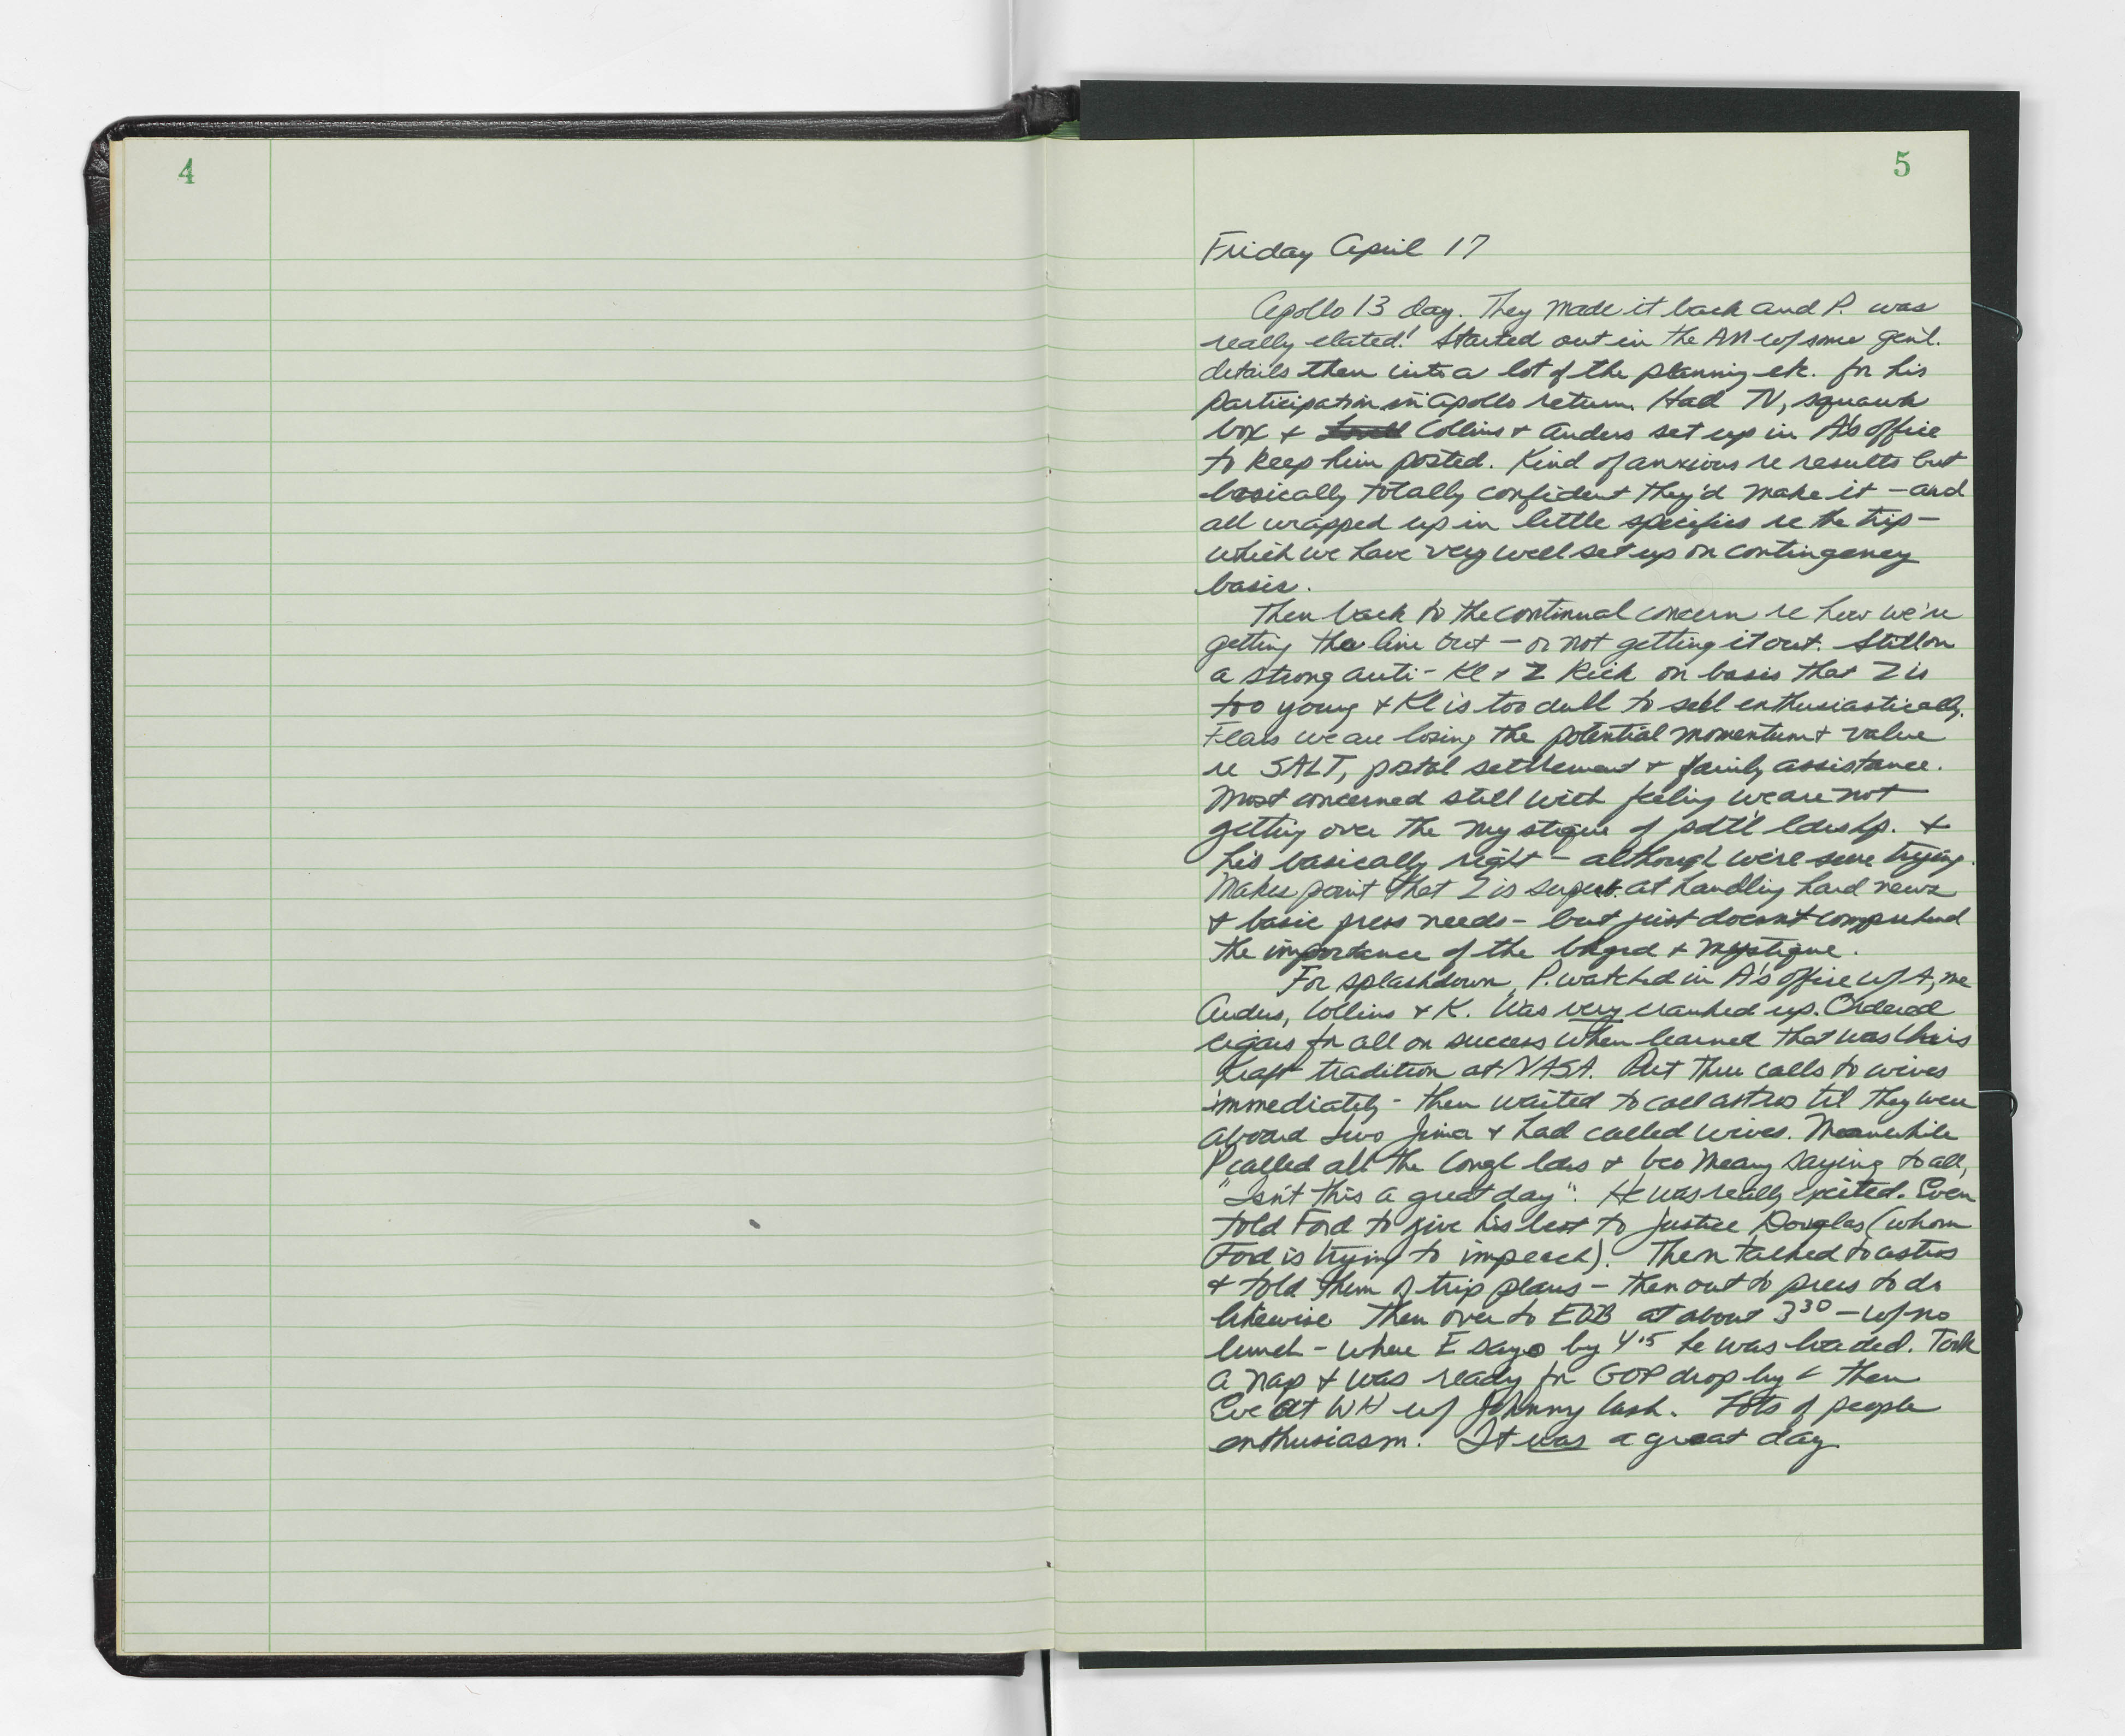 4
5
Friday April 17
Apollo 13 day. They made it back and P. was
really elated! Started out in the AM w/some gen'l.
details then into a lot of the planning etc. for his
participation in Apollo return. Had TV, squawk
box + Collins + Anders set up in A's office
to keep him posted. Kind of anxious re results but
basically totally confident they'd make it - and
all wrapped up in little specifics re the trip -
which we have very well set up on contingency
basis.
Then back to the continual concern re how we're
getting the line out - or not getting it out. Still on
a strong anti-Kl + Z kick on basis that Z is
too young + Kl is too dull to sell enthusiastically.
Fears we are losing the potential momentum + value
re SALT, postal settlement + family assistance.
Most concerned still with feeling we are not
getting over the mystique of pdt'l ldrshp. +
his basically right - although we're sure trying.
Makes point that Z is superb at handling hard news
+ basic press needs - but just doesn't comprehend
the importance of the bkgrd + mystique.
For splashdown, P. watched in A's office w/A, me
Anders, Collins + K. Was very cranked up. Ordered
cigars for all on success when learned that was Chris
Kraft tradition at NASA. Put thru calls to wives
immediately - then waited to call astros til they were
aboard Iwo Jima + had called wives. Meanwhile
P called all the Congl ldrs + Geo Meany saying to all,
"Isn't this a great day". He was really excited. Even
told Ford to give his best to Justice Douglas (whom
Ford is trying to impeach). Then talked to astros
+ told them of trip plans - then out to press to do
likewise. Then over to EOB at about 3³⁰ - w/no
lunch - where E says by 4:15 he was loaded. Took
a nap + was ready for GOP drop by + then
Eve at WH w/ Johnny Cash. Lots of people
enthusiasm. It was a great day.